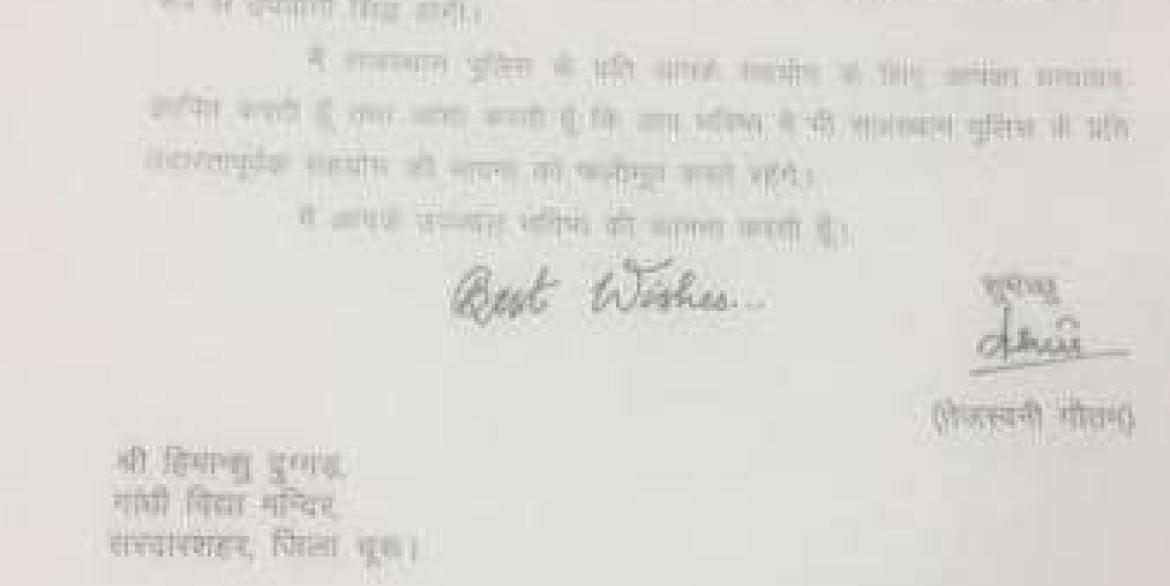 रूप से उपयोगी सिद्ध होगी।
मैं राजस्थान पुलिस के प्रति आपके सहयोग के लिए आपका धन्यवाद
ज्ञापित करती हूँ तथा आशा करती हूँ कि आप भविष्य में भी राजस्थान पुलिस के प्रति
उदारतापूर्वक सहयोग की भावना को फलीभूत करते रहेंगे।
मैं आपके उज्ज्वल भविष्य की कामना करती हूँ।
Best Wishes...
शुभेच्छु
(तेजस्वनी गौतम)
श्री हिमान्शु दुग्गड़,
गांधी विद्या मन्दिर,
सरदारशहर, जिला चूरू।